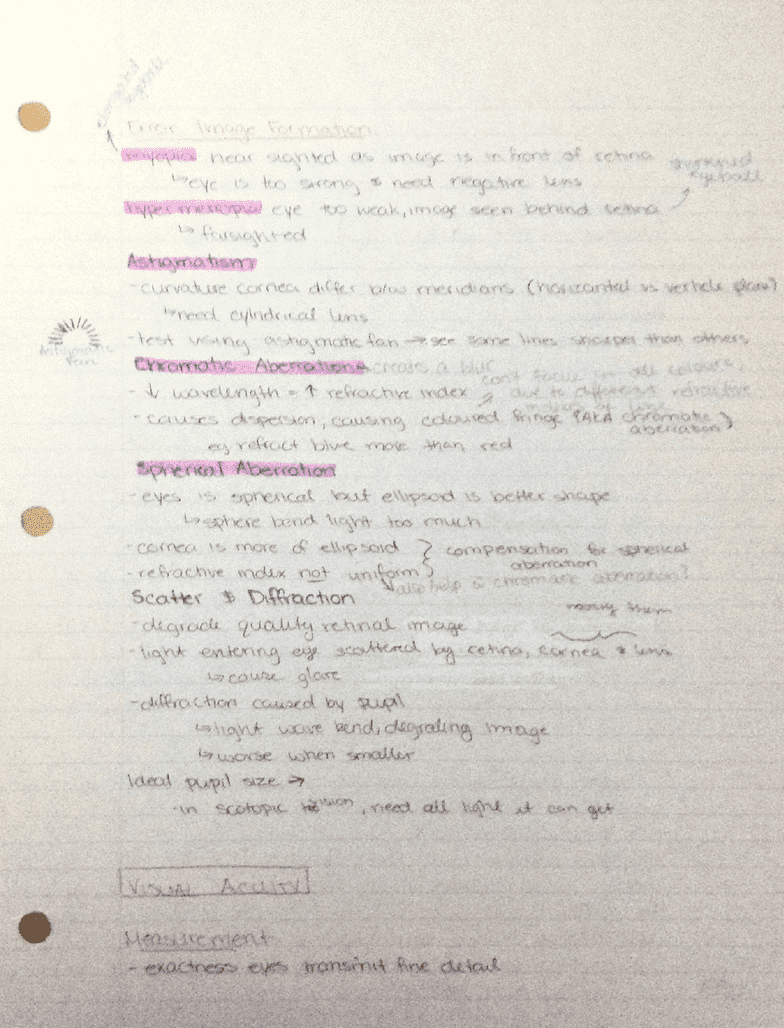 elongated eyeball
Error Image Formation
myopia near sighted as image is in front of retina
shortened eyeball
↳eye is too strong & need negative lens
hypermetropia eye too weak, image seen behind retina
↳ farsighted
Astigmatism
-curvature cornea differ b/w meridians (horizontal vs verticle plane)
↳need cylindrical lens
-test using astigmatic fan → see some lines sharper than others
Astigmatic Fan
Chromatic Aberration → creates a blur
can't focus on all colours
-↓ wavelength = ↑ refractive index
due to different refractive
-causes dispersion, causing coloured fringe (AKA chromatic aberration)
eg refract blue more than red
Spherical Aberration
-eyes is spherical but ellipsoid is better shape
↳sphere bend light too much
-cornea is more of ellipsoid } compensation for spherical aberration
-refractive index not uniform }
↳also help c chromatic aberration?
Scatter & Diffraction
-degrade quality retinal image
mostly them
-light entering eye scattered by retina, cornea & lens
↳ cause glare
-diffraction caused by pupil
↳light wave bend, degrading image
↳worse when smaller
Ideal pupil size →
-in scotopic vision, need all light it can get
VISUAL ACUITY
Measurement
- exactness eyes transmit fine detail